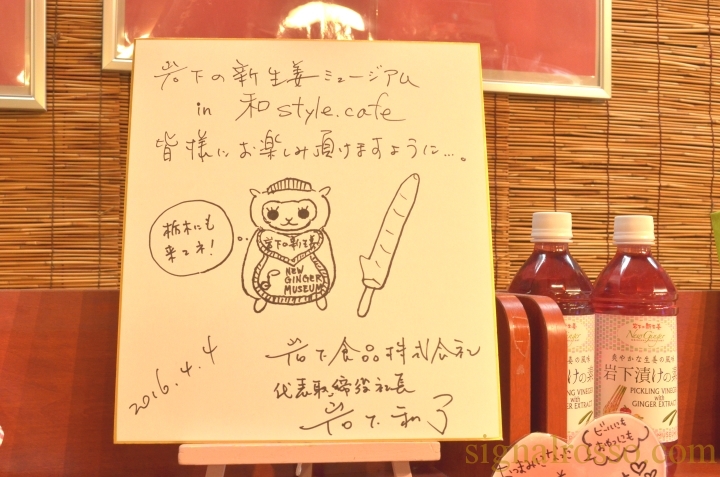 岩下の新生姜ミュージアム
in 和style.cafe
皆様にお楽しみ頂けますように…。
栃木にも
来てネ!
岩下の新生姜
NEW
GINGER
MUSEUM
2016.4.4
岩下食品株式会社
代表取締役社長
岩下和了
岩下の新生姜
New Ginger
爽やかな生姜の風味
岩下漬けの素
PICKLING VINEGAR
with
GINGER EXTRACT
ビールにも
signalrosso.com